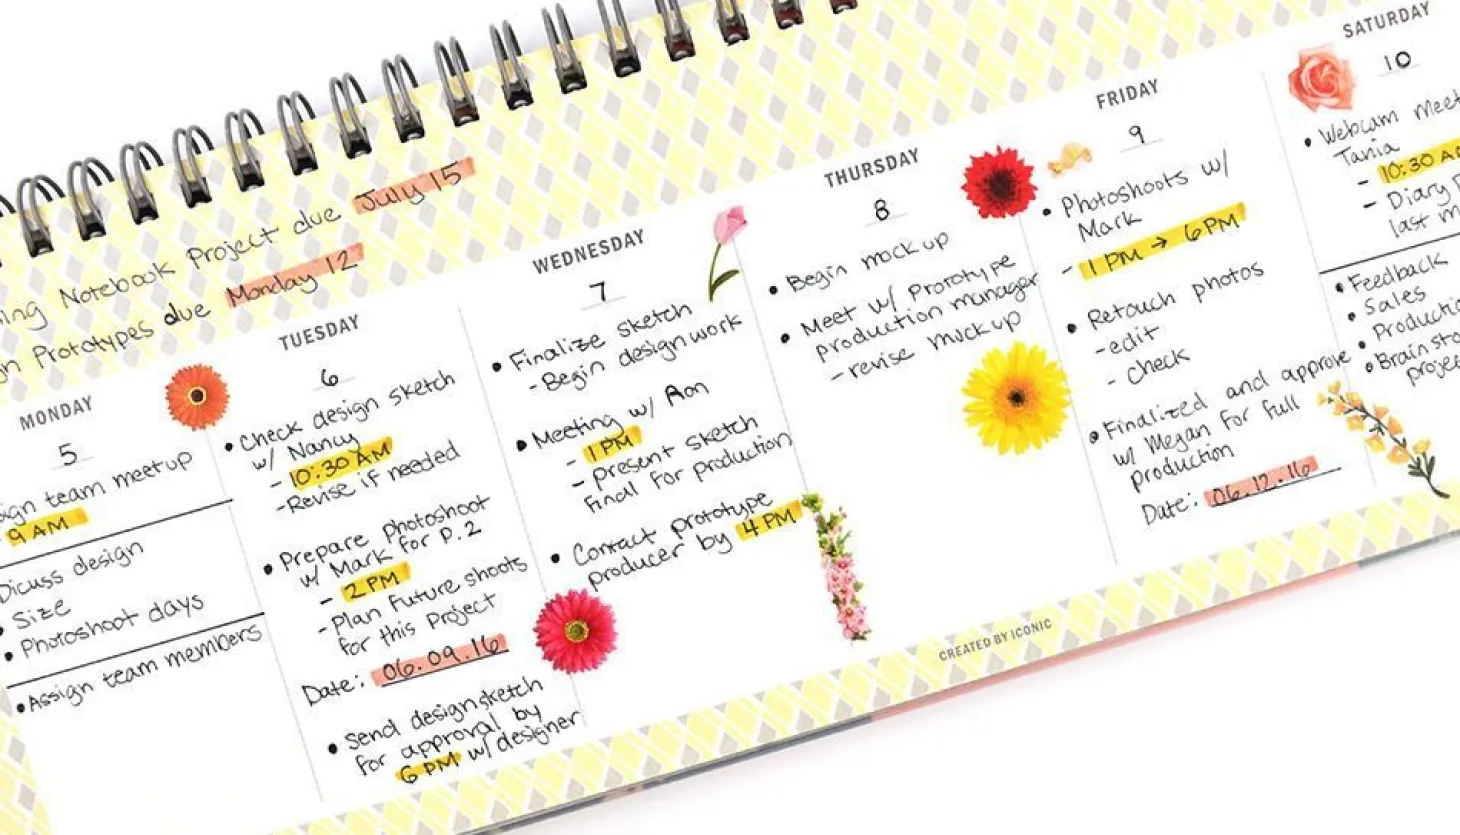 Notebook Project due July 15
Prototypes due Monday 12
MONDAY
5
team meetup
9 AM
Dicuss design
• Size
• Photoshoot days
• Assign team members
TUESDAY
6
• Check design sketch
w/ Nancy
- 10:30 AM
- Revise if needed
• Prepare photoshoot
w/ Mark for P.2
- 2 PM
- Plan future shoots
for this Project
Date: 06.09.16
• Send design sketch
for approval by
6 PM w/ designer
WEDNESDAY
7
• Finalize sketch
- Begin design work
• Meeting w/ Ron
- 1 PM
- Present sketch
final for production
• Contact prototype
producer by 4 PM
THURSDAY
8
• Begin mock up
• Meet w/ Prototype
production manager
- revise mock up
FRIDAY
9
• Photoshoots w/
Mark
- 1 PM → 6 PM
• Retouch photos
- edit
- check
• Finalized and approve
w/ Megan for full
production
Date: 06.12.16
SATURDAY
10
• Webcam
Tania
- 10:30
- Diary
last
• Feedback
• Sales
•
•
CREATED BY ICONIC